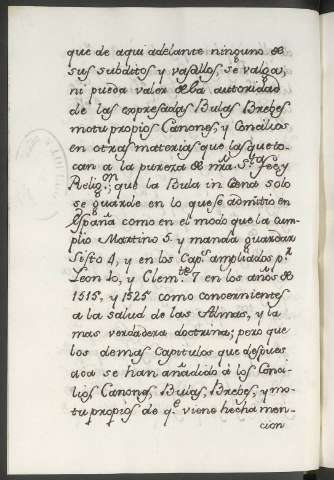 que de aqui adelante ninguno de
sus subditos y vasallos, se valga,
ni pueda valer de la autoridad
de las expresadas Bulas Brebes
motu propios Canones, y Concilios
en otras materias que las que to-
can a la pureza de nrã. S.ta fee, y
Relig.on; que la Bula in Cena solo
se guarde en lo que se admitio en
España como en el modo que la cum-
plio Martino 5. y manda guardar
Sisto 4, y en los Cap.s ampliados p.r
Leon 10, y Clem.te 7 en los años de
1515, y 1525 como concernientes
a la salud de las Almas, y la
mas verdadera doctrina; pero que
los demas Capitulos que despues
aca se han añadido á los Conci-
lios, Canones, Bulas, Brebes, y mo-
tu propios de q.e viene hecha men-
cion